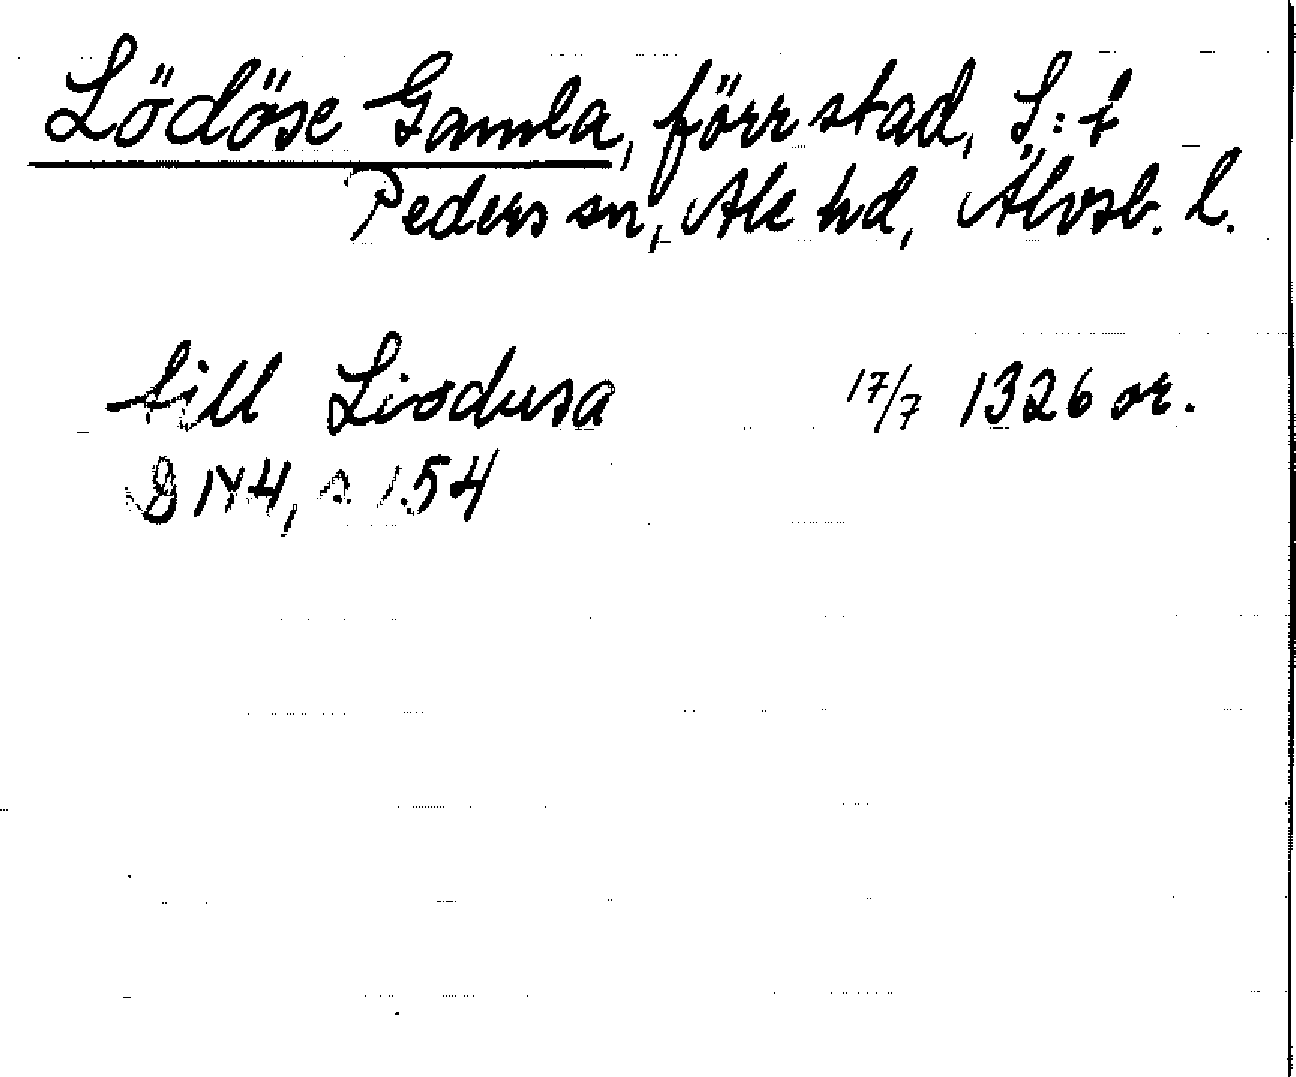 Lödöse Gamla, förr stad, S:t
Peders sn, Ale hd, Älvsb. l.
till Liodusa 17/7 1326 or.
B 144, s. 154